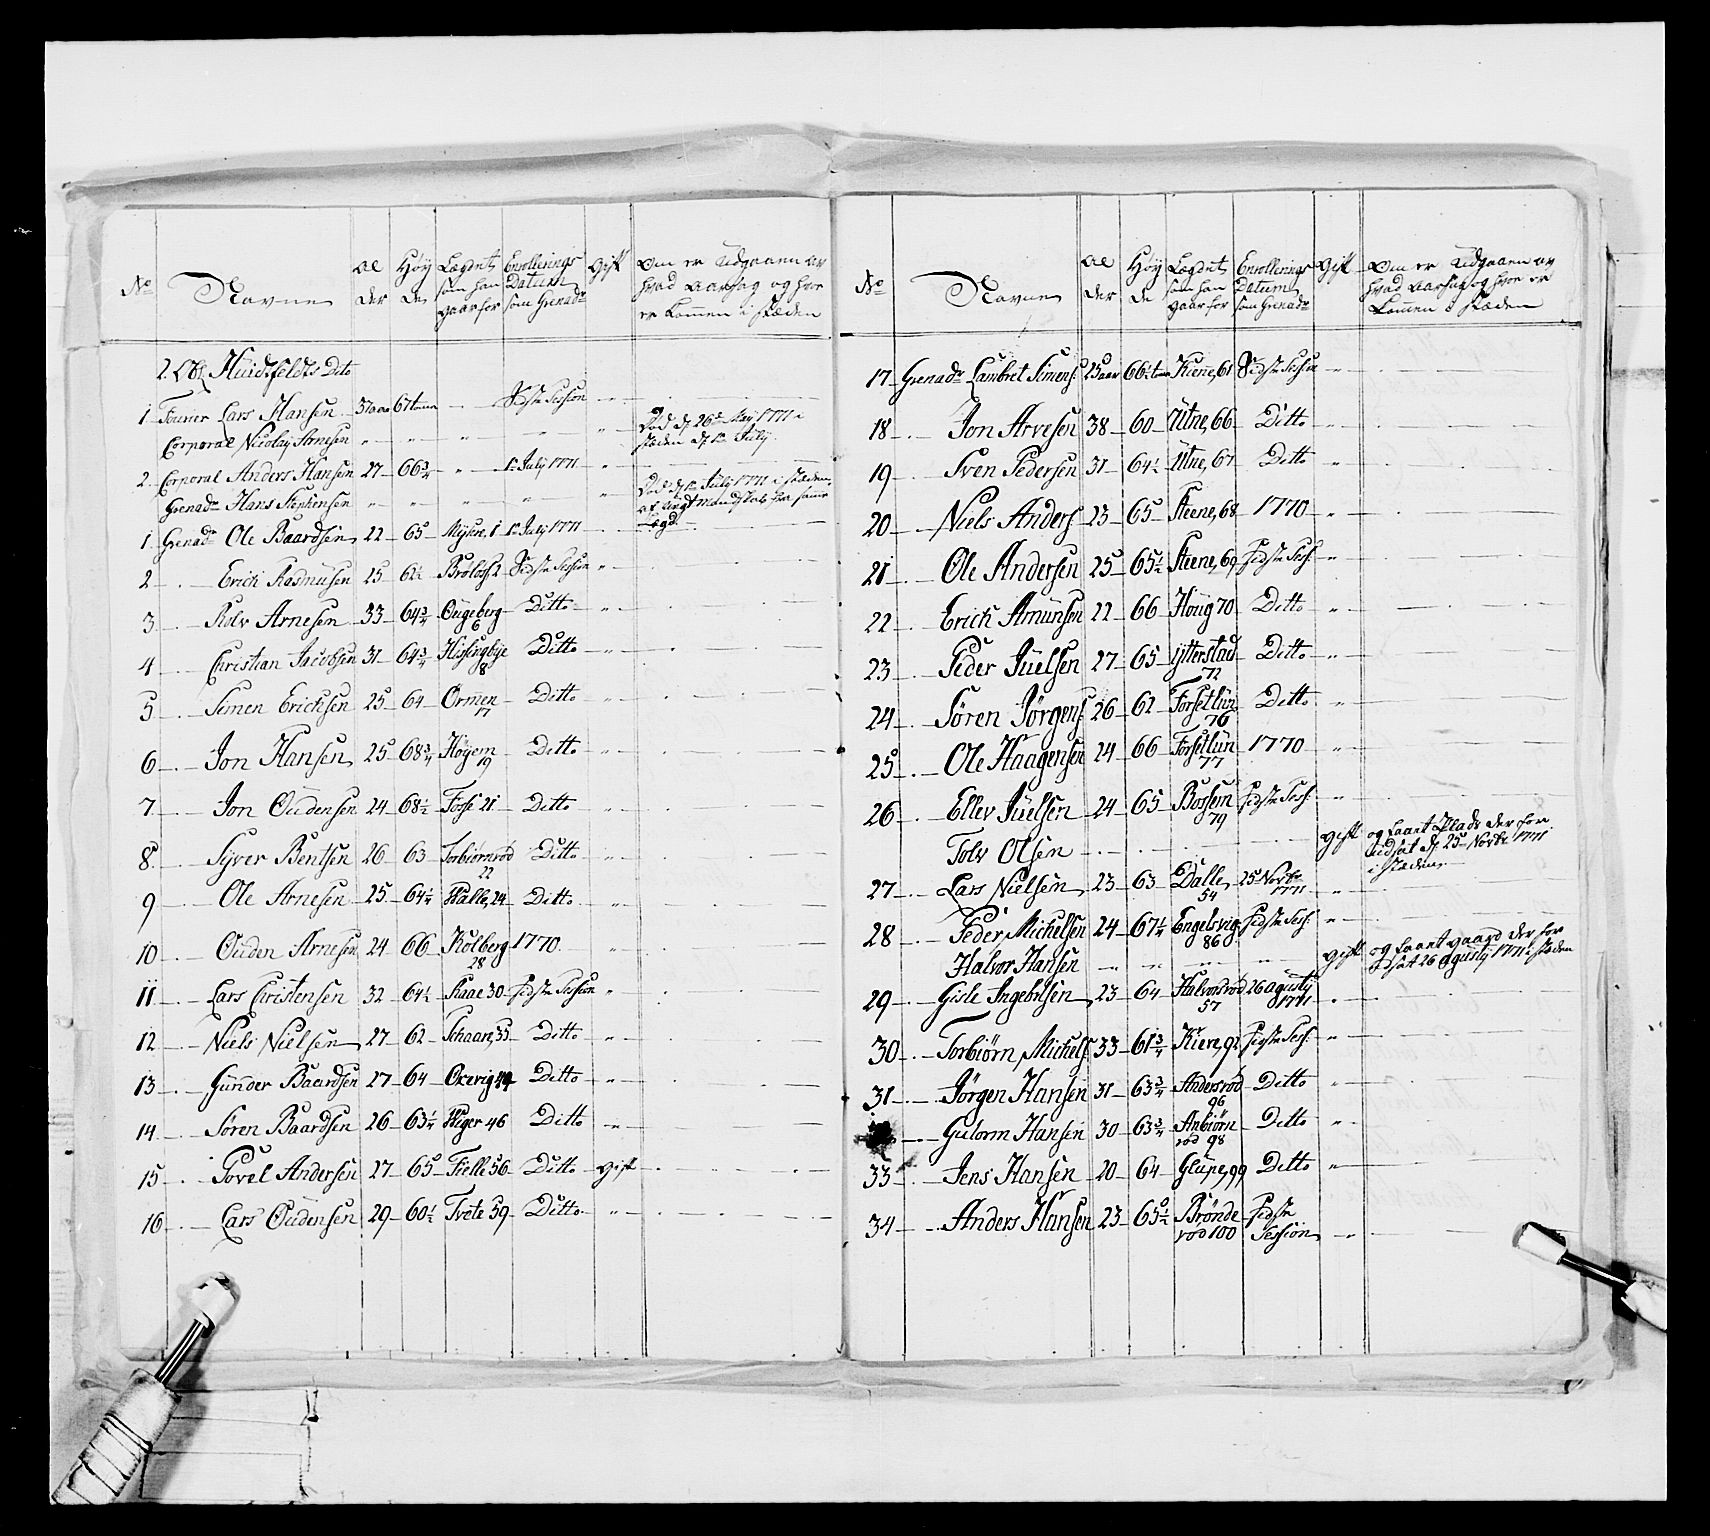 No Navne Al der Høy de Lægdet som han staar for Enrollerings Datum som Grenadr Gift Om er Udgaaen av hvad Aarsag og hvor er kommen i stæden
2. Obl. Huidtfeldts Dito
1 Fourier Lars Hansen 37 aar 67 tomr " Sidste Session "
Corporal Nicolaij Arnesen " " " " " Død d. 26de Maij 1771 i stæden d. 1te Julij
2 Corporal Anders Hansen 27 66 3/4 " 1te Julij 1771 "
Grenadr Hans Stephensen " " " " " Død d. 1te Julij 1771 i stæden af ungt Mandskab fra samme Lægd
1 Grenadr Ole Baardsen 22 65 Mysen, 1 1te Julij 1771 "
2 Erich Rasmusen 25 62 1/2 2 Sidste Session "
3 Rolv Arnesen 33 64 3/4 Ougeberg 6 Ditto "
4 Christian Jacobsen 31 64 3/4 Hisingbye 8 Ditto "
5 Simen Erichsen 25 64 Ormen 17 Ditto "
6 Jon Hansen 25 68 3/4 Høyem 19 Ditto "
7 Jon Oudensen 24 68 1/2 Fosse 21 Ditto "
8 Syver Bentsen 26 63 Torbiørnrød 22 Ditto "
9 Ole Arnesen 25 64 1/4 Halle, 24 Ditto "
10 Ouden Arnesen 24 66 Kolberg 28 1770 "
11 Lars Christensen 32 64 1/2 Skaae 30 Sidste Session "
12 Niels Nielsen 27 62 Schaar, 33 Ditto "
13 Gunder Baardsen 27 64 Oxevig 44 Ditto "
14 Søren Baardsen 26 63 1/4 Huger 46 Ditto "
15 Povel Andersen 27 65 Fielle 56 Ditto Gift
16 Lars Oudensen 29 60 1/2 Tvete 59 Ditto "
No Navne Al der Høy de Lægdet som han staar for Enrollerings Datum som Grenadr Gift Om er Udgaaen av hvad Aarsag og hvor er kommen i stæden
17 Grenadr Lambret Simens. 25 aar 66 1/2 tomr Kiene, 61 Sidste Session "
18 Jon Arvesen 38 60 Utne, 66 Ditto "
19 Sven Pedersen 31 64 1/2 Utne, 67 Ditto "
20 Niels Anders. 23 65 Steene, 68 1770 "
21 Ole Andersen 25 65 1/2 Steene, 69 Sidste Sess. "
22 Erich Amunsen 22 66 Houg 70 Ditto "
23 Peder Juelsen 27 65 Ytterstad 72 Ditto "
24 Søren Jørgens. 26 62 Forsetlun 76 Ditto "
25 Ole Haagensen 24 66 Forsetlun 77 1770 "
26 Ellev Juelsen 24 65 Bossem 79 Sidste Sess. "
Tolv Olsen Gift og faaet Plads der for udsat d. 25de Novbr 1771 i stæden
27 Lars Nielsen 23 63 Dalle, 54 25de Novbr 1771 "
28 Peder Michelsen 24 67 1/4 Engelsvig 86 Sidste Sess. "
Halvor Hansen " " " " Gift og faaet gaard der for udsat 26 Agusty 1771 i stæden
29 Gisle Ingebrtsen 23 64 Halvorsrød 57 26 agusty 1771 "
30 Torbiørn Michels. 33 61 3/4 Kiere, 92 Sidste Sess. "
31 Jørgen Hansen 31 63 3/4 Andersrød 96 Ditto "
Gulorm Hansen 30 63 3/4 Anbiørn rød 98 Ditto "
33 Jens Hansen 20 64 Glupe, 99 Ditto "
34 Anders Hansen 23 65 1/2 Brønde rød 100 Sidste Session "